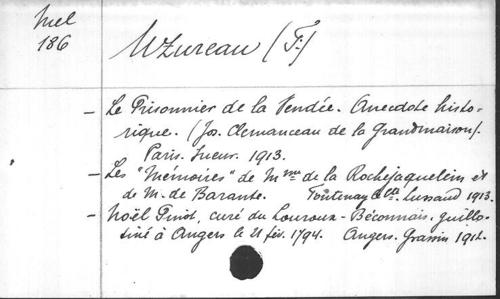 Mel
186
Uzureau (F.)
– Le Prisonnier de la Vendée. Anecdote histo-
rique. (Jos. Clemanceau de la Grandmaison).
Paris. Sueur. 1913.
– Les "Mémoires" de Mme de la Rochejaquelein et
de M. de Barante. Fontenay le Cte. Lussaud 1913.
– Noël Pinot, curé du Louroux-Béconnais, guillo-
tiné à Angers le 21 fév. 1794. Angers. Grassin 1912.